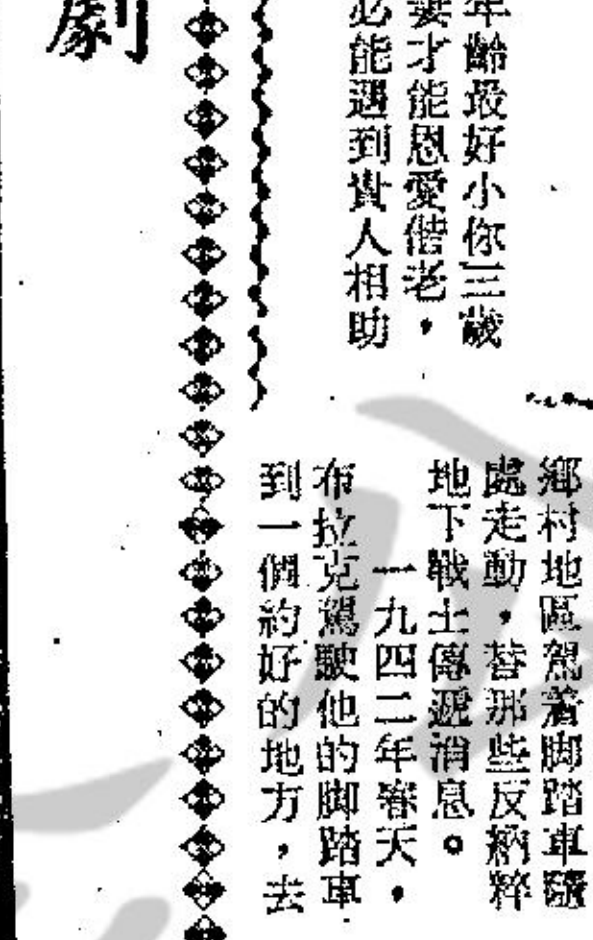 年齡最好小你三歲
妻才能恩愛偕老，
必能遇到貴人相助
鄉村地區駕着脚踏車隨
處走動，替那些反納粹
地下戰士傳遞消息。
一九四二年春天，
布拉克駕駛他的脚踏車
到一個約好的地方，去
劇